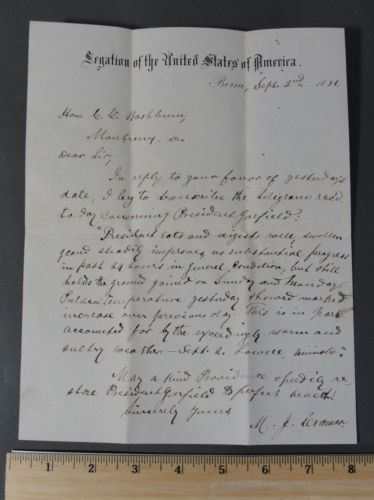 Legation of the United States of America.
Berne, Sept. 2nd 1881.
Hon. C. C. Washburn,
Montreux,
Dear Sir,
In reply to your favor of yesterday's
date, I beg to transcribe the telegram rec'd
to day concerning President Garfield:
"President eats and digests well, swollen
gland steadily improves, no substantial progress
in past 24 hours in general condition, but still
holds the ground gained on Sunday and Monday
Pulse temperature yesterday showed marked
increase over previous day This is in part
accounted for by the exceedingly warm and
sultry weather — Sept. 2. Lowell, minister."
May a kind Providence speedily re-
store President Garfield to perfect health!
Sincerely yours
M. J. Cramer
1 2 3 4 5 6 7 8